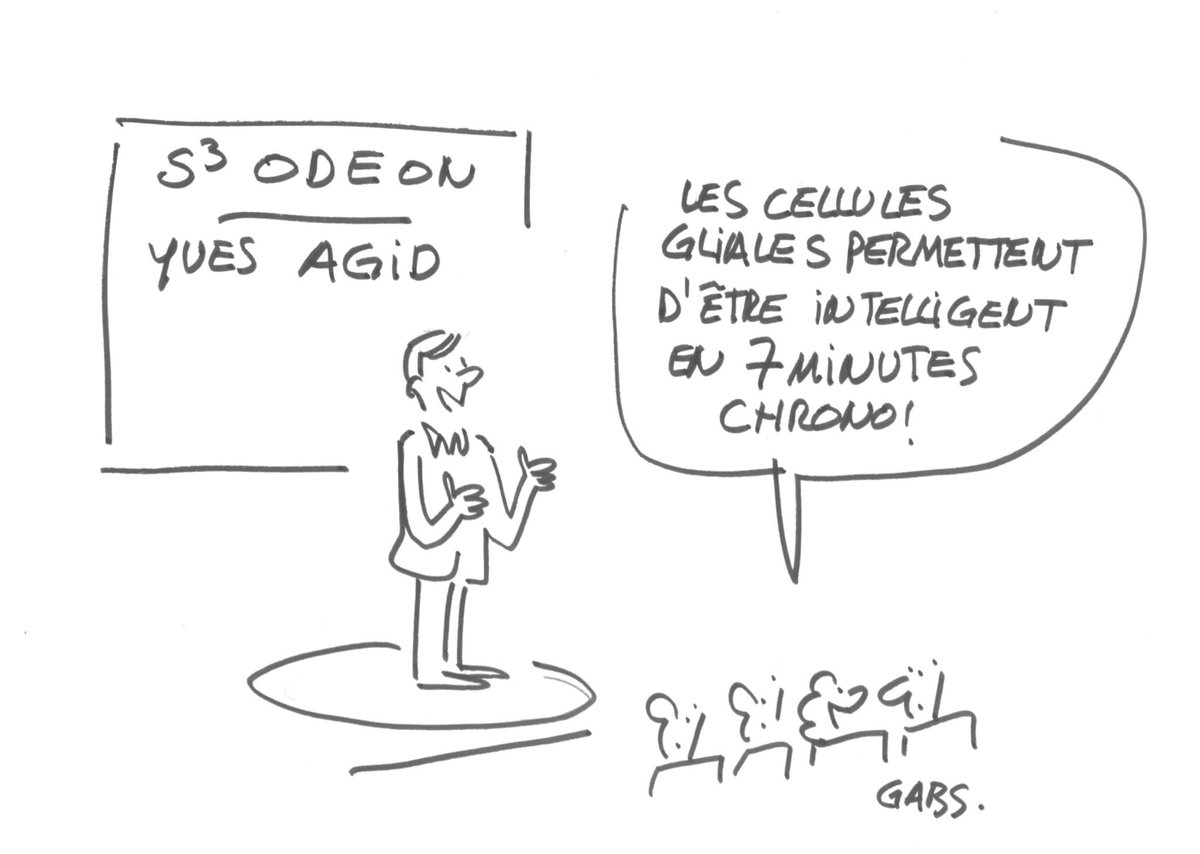 S³ ODEON
YVES AGiD
LES CELLULES
GLIALES PERMETTENT
D'ÊTRE iNTELLIGENT
EN 7 MiNUTES
CHRONO!
GABS.